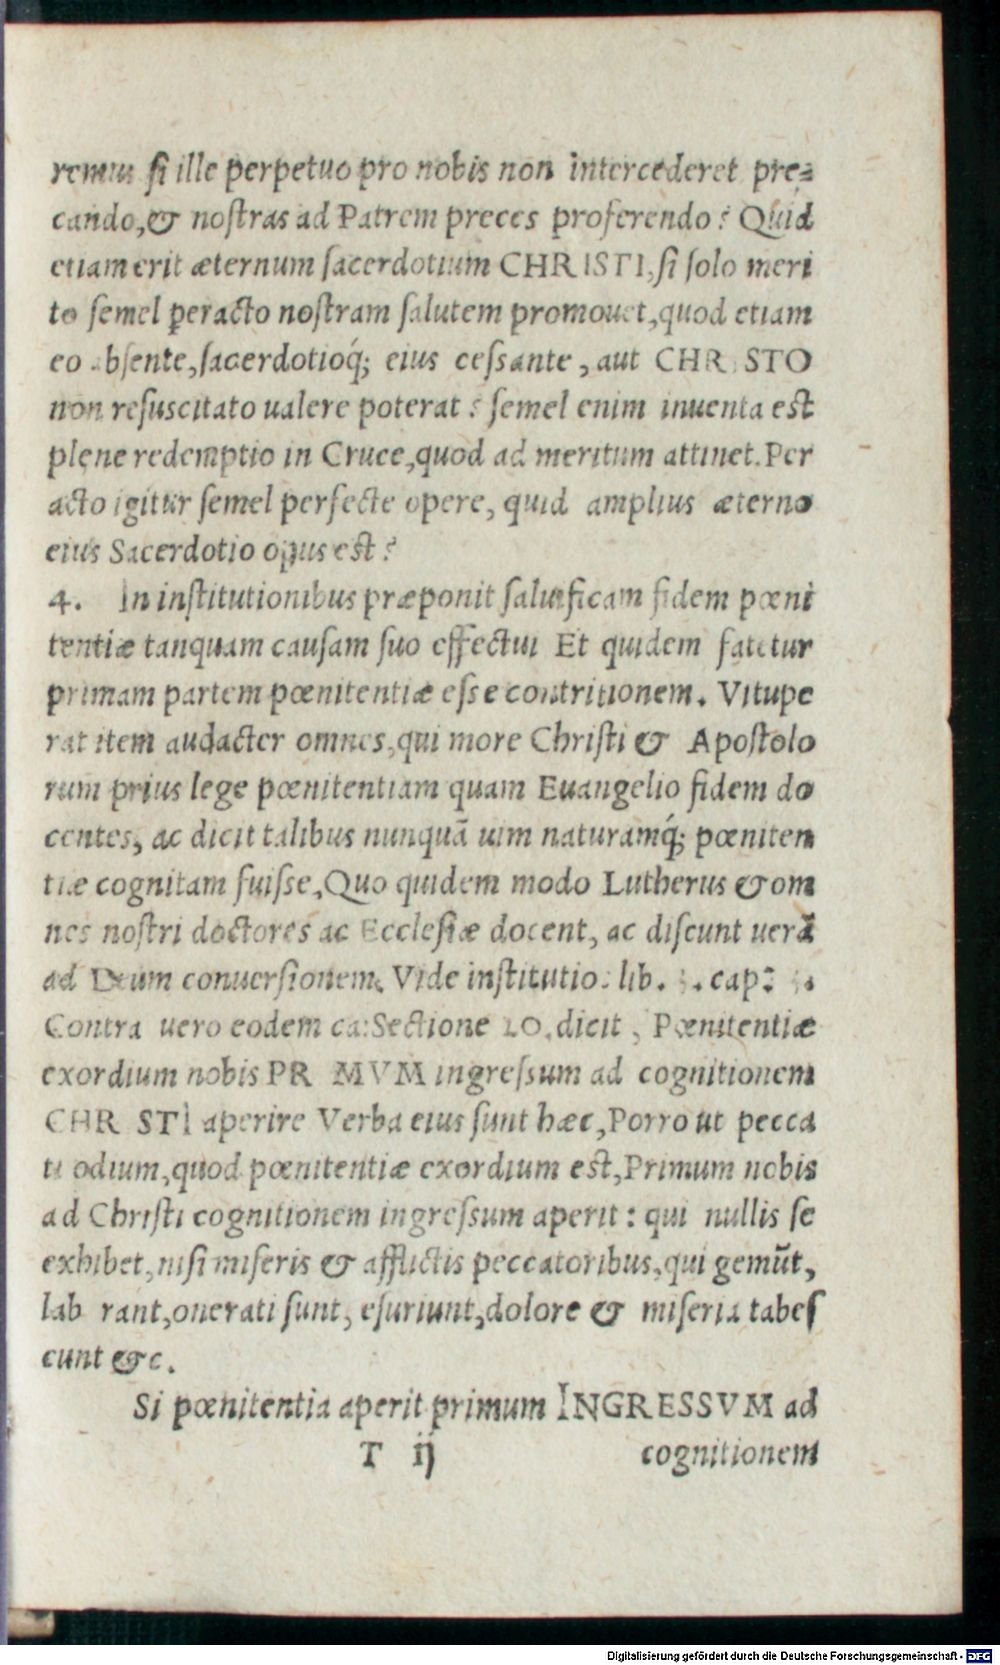 remus si ille perpetuo pro nobis non intercederet pre=
cando,& nostras ad Patrem preces proferendo? Quid
etiam erit æternum sacerdotium CHRISTI, si solo meri
to semel peracto nostram salutem promouet, quod etiam
eo absente, sacerdotioq́; eius cessante, aut CHRISTO
non resuscitato ualere poterat? semel enim inuenta est
plene redemptio in Cruce, quod ad meritum attinet. Per
acto igitur semel perfecte opere, quid amplius æterno
eius Sacerdotio opus est?
4. In institutionibus præponit saluificam fidem pœni
tentiæ tanquam causam suo effectui Et quidem fatetur
primam partem pœnitentiæ esse contritionem. Vitupe
rat item audacter omnes, qui more Christi & Apostolo
rum prius lege pœnitentiam quam Euangelio fidem do
centes, ac dicit talibus nunquã uim naturamq́; pœniten
tiæ cognitam fuisse, Quo quidem modo Lutherus & om
nes nostri doctores ac Ecclesiæ docent, ac discunt uerã
ad Deum conuersionem. Vide institutio. lib. cap:
Contra uero eodem ca: Sectione 20. dicit, Pœnitentiæ
exordium nobis PRIMVM ingressum ad cognitionem
CHRISTI aperire Verba eius sunt hæc, Porro ut pecca
ti odium, quod pœnitentiæ exordium est, Primum nobis
ad Christi cognitionem ingressum aperit: qui nullis se
exhibet, nisi miseris & afflictis peccatoribus, qui gemũt,
laborant, onerati sunt, esuriunt, dolore & miseria tabes
cunt &c.
Si pœnitentia aperit primum INGRESSVM ad
T ij cognitionem
Digitalisierung gefördert durch die Deutsche Forschungsgemeinschaft - DFG